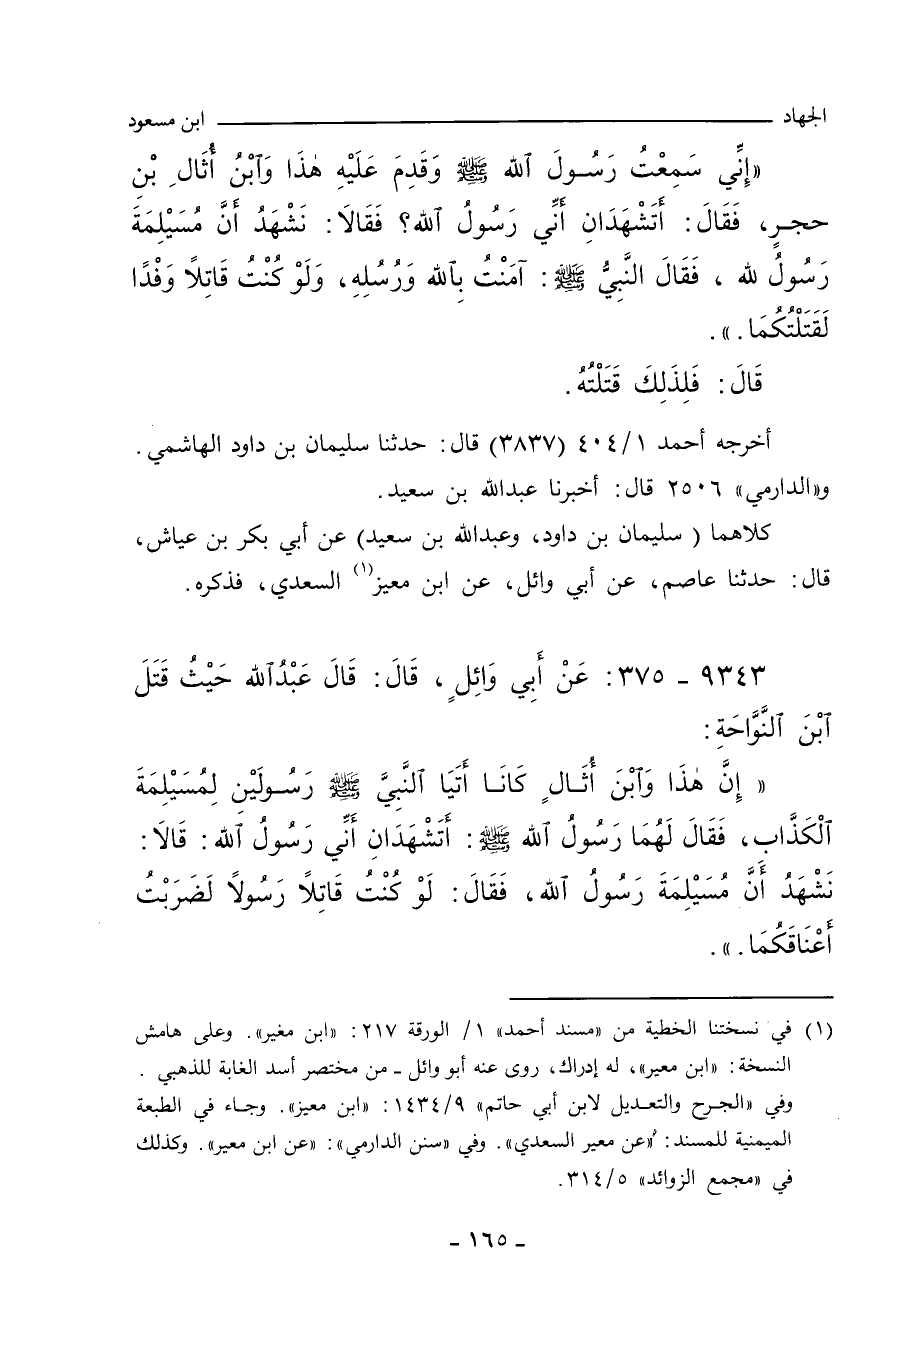 الجهاد ابن مسعود
«إِنِّي سَمِعْتُ رَسُولَ ٱلله ﷺ وَقَدِمَ عَلَيْهِ هٰذَا وَٱبْنُ أُثَالِ بْنِ
حجرٍ، فَقَالَ: أَتَشْهَدَانِ أَنِّي رَسُولُ ٱلله؟ فَقَالَا: نَشْهَدُ أَنَّ مُسَيْلِمَةَ
رَسُولُ لله ، فَقَالَ النَّبِيُّ ﷺ: آمَنْتُ بِٱلله وَرُسُلِهِ، وَلَوْ كُنْتُ قَاتِلًا وَفْدًا
لَقَتَلْتُكُمَا.».
قَالَ: فَلِذَلِكَ قَتَلْتُهُ.
أخرجه أحمد ١/٤٠٤ (٣٨٣٧) قال: حدثنا سليمان بن داود الهاشمي.
و«الدارمي» ٢٥٠٦ قال: أخبرنا عبدالله بن سعيد.
كلاهما ( سليمان بن داود، وعبدالله بن سعيد) عن أبي بكر بن عياش،
قال: حدثنا عاصم، عن أبي وائل، عن ابن معيز(١) السعدي، فذكره.
٩٣٤٣ ـ ٣٧٥: عَنْ أَبِي وَائِلٍ، قَالَ: قَالَ عَبْدُٱلله حَيْثُ قَتَلَ
ٱبْنَ ٱلنَّوَّاحَةِ:
« إِنَّ هٰذَا وَٱبْنَ أُثَالٍ كَانَا أَتَيَا ٱلنَّبِيَّ ﷺ رَسُولَيْنِ لِمُسَيْلِمَةَ
ٱلْكَذَّابِ، فَقَالَ لَهُمَا رَسُولُ ٱلله ﷺ: أَتَشْهَدَانِ أَنِّي رَسُولُ ٱلله: قَالَا:
نَشْهَدُ أَنَّ مُسَيْلِمَةَ رَسُولُ ٱلله، فَقَالَ: لَوْ كُنْتُ قَاتِلًا رَسُولًا لَضَرَبْتُ
أَعْنَاقَكُمَا.».
(١) في نسختنا الخطية من «مسند أحمد» ١/ الورقة ٢١٧: «ابن مغير». وعلى هامش
النسخة: «ابن معير»، له إدراك، روى عنه أبو وائل ـ من مختصر أسد الغابة للذهبي .
وفي «الجرح والتعديل لابن أبي حاتم» ١٤٣٤/٩: «ابن معيز». وجاء في الطبعة
الميمنية للمسند: «عن معير السعدي». وفي «سنن الدارمي»: «عن ابن معير». وكذلك
في «مجمع الزوائد» ٣١٤/٥.
ـ ١٦٥ ـ